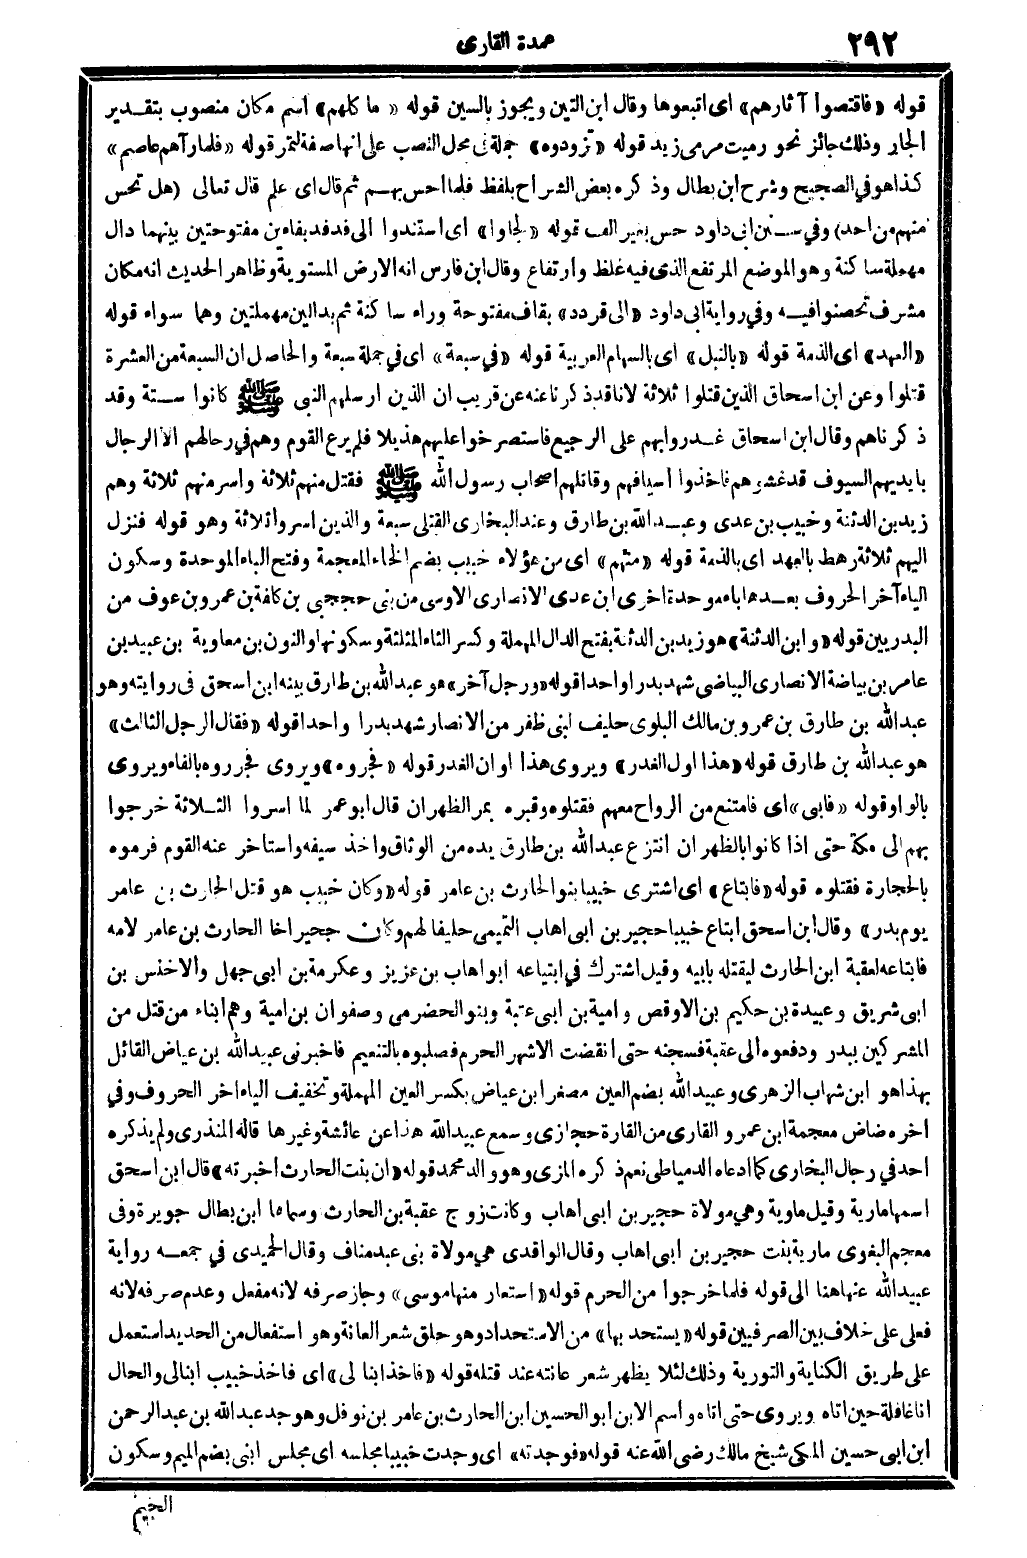 ٢٩٢
عمدة القارى
قوله «فاقتصوا آثارهم» اى اتبعوها وقال ابن التين ويجوز بالسين قوله «ما كلهم» اسم مكان منصوب بتقدير
الجار وذلك جائز نحو رميت مرمى زيد قوله «تزودوه» جملة فى محل النصب على انها صفة لتمر قوله «فلما رآهم عاصم»
كذا هو فى الصحيح وشرح ابن بطال وذكره بعض الشراح بلفظ فلما احس بهم ثم قال اى علم قال تعالى (هل تحس
منهم من احد) وفي سنن ابى داود حس بغير الف قوله «لجاوا» اى استندوا الى فدفد بفاءين مفتوحتين بينهما دال
مهملة ساكنة وهو الموضع المرتفع الذى فيه غلظ وارتفاع وقال ابن فارس انه الارض المستوية وظاهر الحديث انه مكان
مشرف تحصنوا فيه وفي رواية ابى داود «الى قردد» بقاف مفتوحة وراء ساكنة ثم بدالين مهملتين وهما سواء قوله
«العهد» اى الذمة قوله «بالنبل» اى بالسهام العربية قوله «فى سبعة» اى فى جملة سبعة والحاصل ان السبعة من العشرة
قتلوا وعن ابن اسحاق الذين قتلوا ثلاثة لانا قد ذكرنا عنه عن قريب ان الذين ارسلهم النبى ﷺ كانوا ستة وقد
ذكرناهم وقال ابن اسحاق غدروا بهم على الرجيع فاستصرخوا عليهم هذيلا فلم يرع القوم وهم فى رحالهم الا الرجال
بايديهم السيوف قد غشوهم فاخذوا اسيافهم وقاتلهم اصحاب رسول الله ﷺ فقتل منهم ثلاثة واسر منهم ثلاثة وهم
زيد بن الدثنة وخبيب بن عدى وعبد الله بن طارق وعند البخارى القتلى سبعة والذين اسروا ثلاثة وهو قوله فنزل
اليهم ثلاثة رهط بالعهد اى بالذمة قوله «منهم» اى من هؤلاء خبيب بضم الخاء المعجمة وفتح الباء الموحدة وسكون
الياء آخر الحروف بعدها باء موحدة اخرى ابن عدى الانصارى الاوسى من بنى جحجبى بن كلفة بن عمرو بن عوف من
البدريين قوله «وابن الدثنة» هو زيد بن الدثنة بفتح الدال المهملة وكسر الثاء المثلثة وسكونها والنون بن معاوية بن عبيد بن
عامر بن بياضة الانصارى البياضى شهد بدرا واحدا قوله «ورجل آخر» هو عبد الله بن طارق بينه ابن اسحق فى روايته وهو
عبد الله بن طارق بن عمرو بن مالك البلوى حليف لبنى ظفر من الانصار شهد بدرا واحدا قوله «فقال الرجل الثالث»
هو عبد الله بن طارق قوله «هذا اول الغدر» ويروى هذا اوان الغدر قوله «فجروه» ويروى فجرروه بالفاء ويروى
بالواو قوله «فابى» اى فامتنع من الرواح معهم فقتلوه وقبره بمر الظهران قال ابو عمر لما اسروا الثلاثة خرجوا
بهم الى مكة حتى اذا كانوا بالظهران انتزع عبد الله بن طارق يده من الوثاق واخذ سيفه واستاخر عنه القوم فرموه
بالحجارة فقتلوه قوله «فابتاع» اى اشترى خبيبا بنو الحارث بن عامر قوله «وكان خبيب هو قتل الحارث بن عامر
يوم بدر» وقال ابن اسحق ابتاع خبيبا حجير بن ابى اهاب التميمى حليفا لهم وكان حجير اخا الحارث بن عامر لامه
فابتاعه لعقبة ابن الحارث ليقتله بابيه وقيل اشترك فى ابتياعه ابو اهاب بن عزيز وعكرمة بن ابى جهل والاخنس بن
ابى شريق وعبيدة بن حكيم بن الاوقص وامية بن ابى عتبة وبنو الحضرمى وصفوان بن امية وهم ابناء من قتل من
المشركين ببدر ودفعوه الى عقبة فسجنه حتى انقضت الاشهر الحرم فصلبوه بالتنعيم فاخبرنى عبيد الله بن عياض القائل
بهذا هو ابن شهاب الزهرى وعبيد الله بضم العين مصغر ابن عياض بكسر العين المهملة وتخفيف الياء اخر الحروف وفى
اخره ضاض معجمة ابن عمرو القارى من القارة حجازى وسمع عبيد الله هذا عن عائشة وغيرها قاله المنذرى ولم يذكره
احد فى رجال البخارى كما ادعاه الدمياطى نعم ذكره المزى وهو والد محمد قوله «ان بنت الحارث اخبرته» قال ابن اسحق
اسمها مارية وقيل ماوية وهى مولاة حجير بن ابى اهاب وكانت زوج عقبة بن الحارث وسماها ابن بطال جويرة وفى
معجم البغوى مارية بنت حجير بن ابى اهاب وقال الواقدى هى مولاة بنى عبد مناف وقال الحميدى فى جمعه رواية
عبيد الله عنها هنا الى قوله فلما خرجوا من الحرم قوله «استعار منها موسى» وجاز صرفه لانه مفعل وعدم صرفه لانه
فعلى على خلاف بين الصرفيين قوله «يستحد بها» من الاستحداد وهو حلق شعر العانة وهو استفعال من الحديد استعمل
على طريق الكناية والتورية وذلك لئلا يظهر شعر عانته عند قتله قوله «فاخذ ابنا لى» اى فاخذ خبيب ابنا لى والحال
انا غافلة حين اتاه ويروى حتى اتاه واسم الابن ابو الحسين ابن الحارث بن عامر بن نوفل وهو جد عبد الله بن عبد الرحمن
ابن ابى حسين المكى شيخ مالك رضى الله عنه قوله «فوجدته» اى وجدت خبيبا مجلسه اى مجلس ابنى بضم الميم وسكون
الجيم